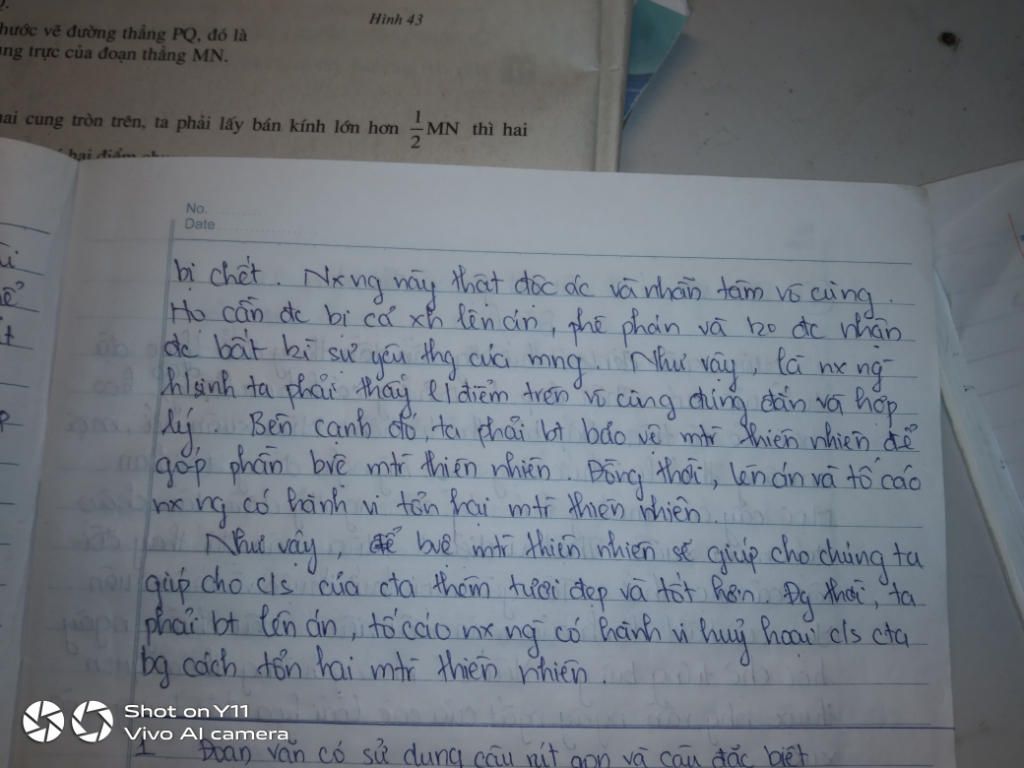 Hình 43
hước vẽ đường thẳng PQ, đó là
ng trực của đoạn thẳng MN.
ai cung tròn trên, ta phải lấy bán kính lớn hơn 1/2 MN thì hai
hai điểm
No.
Date
bị chết. Nx ng này thật độc ác và nhẫn tâm vô cùng.
Họ cần đc bị cả xh lên án, phê phán và ko đc nhận
đc bất kì sự yêu thg của mng. Như vậy, là nx ng
h/sinh ta phải thấy q/điểm trên vô cùng đúng đắn và hợp
lý. Bên cạnh đó, ta phải bt bảo vệ mtr thiên nhiên để
góp phần bvệ mtr thiên nhiên. Đồng thời, lên án và tố cáo
nx ng có hành vi tổn hại mtr thiên nhiên.
Như vậy, để bvệ mtr thiên nhiên sẽ giúp cho chúng ta
giúp cho c/s của cta thêm tươi đẹp và tốt hơn. Đg thời, ta
phải bt lên án, tố cáo nx ng có hành vi huỷ hoại c/s cta
bg cách tổn hại mtr thiên nhiên.
1 Đoạn văn có sử dụng câu rút gọn và câu đặc biệt
Shot on Y11
Vivo AI camera